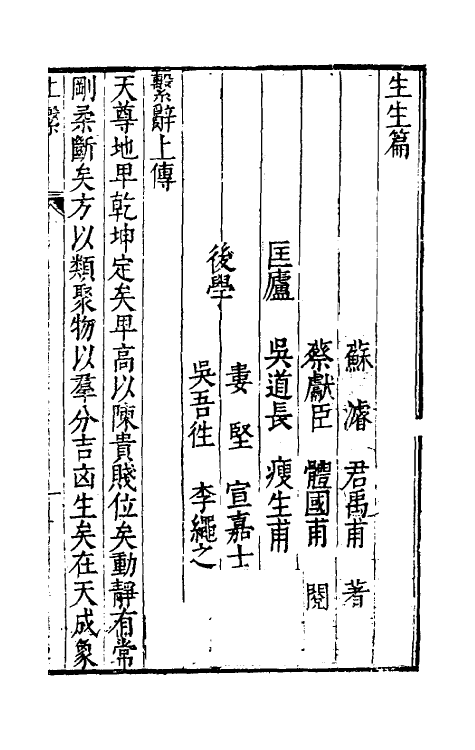 生生篇
蘇濬 君禹甫 著
蔡獻臣 體國甫 閱
匡廬 吳道長 瘦生甫
婁堅 宣嘉士
後學
吳吾徃 李繩之
繫辭上傳
天尊地卑乾坤定矣卑高以陳貴賤位矣動靜有常
剛柔斷矣方以類聚物以羣分吉凶生矣在天成象